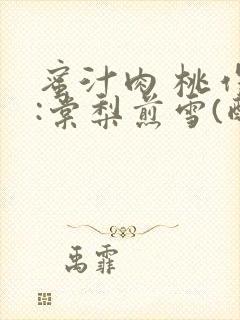 蜜汁肉桃作
:棠梨煎雪(酥
禹霏